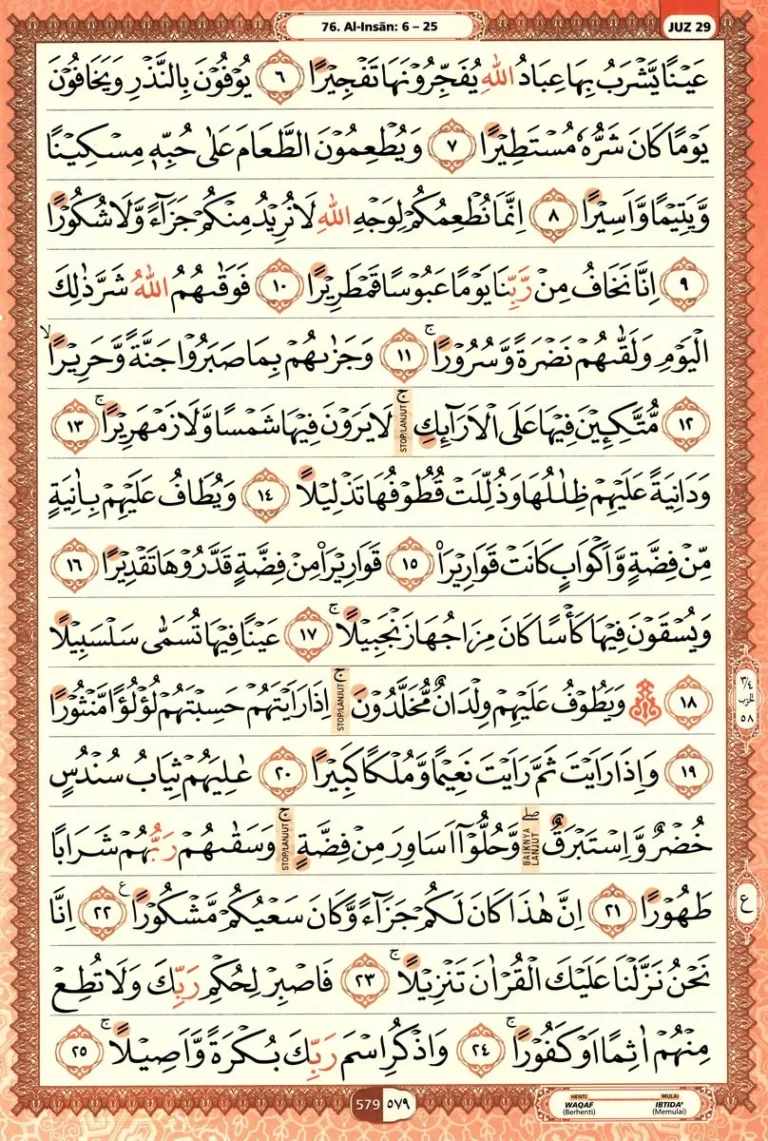 76. Al-Insān: 6 – 25
JUZ 29
عَيْنًا يَّشْرَبُ بِهَا عِبَادُ اللّٰهِ يُفَجِّرُوْنَهَا تَفْجِيْرًا ٦ يُوْفُوْنَ بِالنَّذْرِ وَيَخَافُوْنَ
يَوْمًا كَانَ شَرُّهٗ مُسْتَطِيْرًا ٧ وَيُطْعِمُوْنَ الطَّعَامَ عَلٰى حُبِّهٖ مِسْكِيْنًا
وَّيَتِيْمًا وَّاَسِيْرًا ٨ اِنَّمَا نُطْعِمُكُمْ لِوَجْهِ اللّٰهِ لَا نُرِيْدُ مِنْكُمْ جَزَاۤءً وَّلَا شُكُوْرًا
٩ اِنَّا نَخَافُ مِنْ رَّبِّنَا يَوْمًا عَبُوْسًا قَمْطَرِيْرًا ١٠ فَوَقٰىهُمُ اللّٰهُ شَرَّ ذٰلِكَ
الْيَوْمِ وَلَقّٰىهُمْ نَضْرَةً وَّسُرُوْرًاۚ ١١ وَجَزٰىهُمْ بِمَا صَبَرُوْا جَنَّةً وَّحَرِيْرًاۙ
١٢ مُّتَّكِـِٕيْنَ فِيْهَا عَلَى الْاَرَاۤىِٕكِۚ لَا يَرَوْنَ فِيْهَا شَمْسًا وَّلَا زَمْهَرِيْرًاۚ ١٣
STOP/LANJUT
وَدَانِيَةً عَلَيْهِمْ ظِلٰلُهَا وَذُلِّلَتْ قُطُوْفُهَا تَذْلِيْلًا ١٤ وَيُطَافُ عَلَيْهِمْ بِاٰنِيَةٍ
مِّنْ فِضَّةٍ وَّاَكْوَابٍ كَانَتْ قَوَارِيْرَا۠ ١٥ قَوَارِيْرَا۟ مِنْ فِضَّةٍ قَدَّرُوْهَا تَقْدِيْرًا ١٦
وَيُسْقَوْنَ فِيْهَا كَأْسًا كَانَ مِزَاجُهَا زَنْجَبِيْلًاۚ ١٧ عَيْنًا فِيْهَا تُسَمّٰى سَلْسَبِيْلًا
١٨ ۞ وَيَطُوْفُ عَلَيْهِمْ وِلْدَانٌ مُّخَلَّدُوْنَۚ اِذَا رَاَيْتَهُمْ حَسِبْتَهُمْ لُؤْلُؤًا مَّنْثُوْرًا
STOP/LANJUT
٣/٤ الحزب ٥٨
١٩ وَاِذَا رَاَيْتَ ثَمَّ رَاَيْتَ نَعِيْمًا وَّمُلْكًا كَبِيْرًا ٢٠ عٰلِيَهُمْ ثِيَابُ سُنْدُسٍ
خُضْرٌ وَّاِسْتَبْرَقٌۖ وَّحُلُّوْٓا اَسَاوِرَ مِنْ فِضَّةٍۚ وَسَقٰىهُمْ رَبُّهُمْ شَرَابًا
BAIKNYA LANJUT
STOP/LANJUT
طَهُوْرًا ٢١ اِنَّ هٰذَا كَانَ لَكُمْ جَزَاۤءً وَّكَانَ سَعْيُكُمْ مَّشْكُوْرًاࣖ ٢٢ اِنَّا
ع
نَحْنُ نَزَّلْنَا عَلَيْكَ الْقُرْاٰنَ تَنْزِيْلًاۚ ٢٣ فَاصْبِرْ لِحُكْمِ رَبِّكَ وَلَا تُطِعْ
مِنْهُمْ اٰثِمًا اَوْ كَفُوْرًاۚ ٢٤ وَاذْكُرِ اسْمَ رَبِّكَ بُكْرَةً وَّاَصِيْلًاۚ ٢٥
579 ٥٧٩
HENTI MULAI
WAQAF IBTIDA'
(Berhenti) (Memulai)